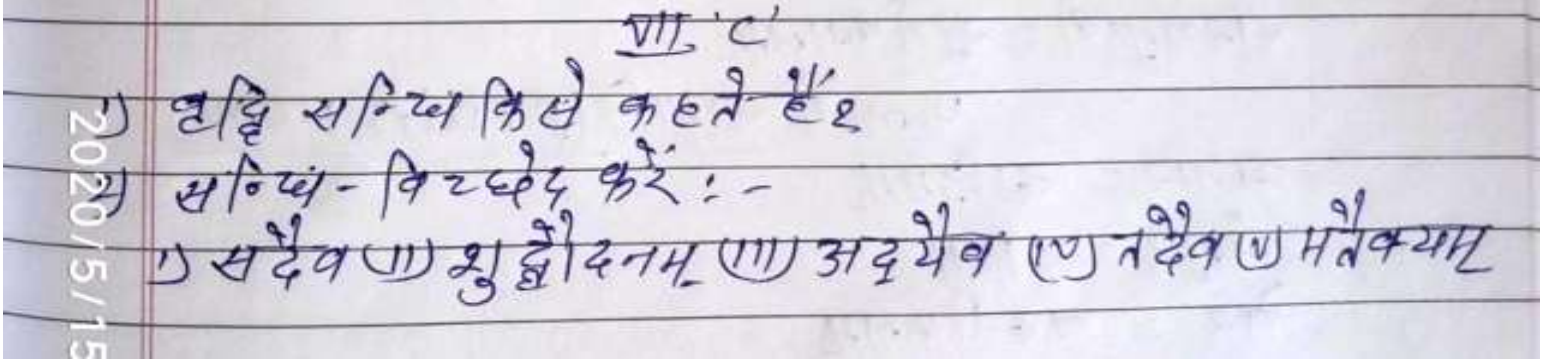 VII 'C'
1) वृद्धि सन्धि किसे कहते हैं?
2) सन्धि-विच्छेद करें :-
i) सदैव (ii) शुद्धौदनम् (iii) अद्यैव (iv) तदैव (v) मतैक्यम्
2020/5/15